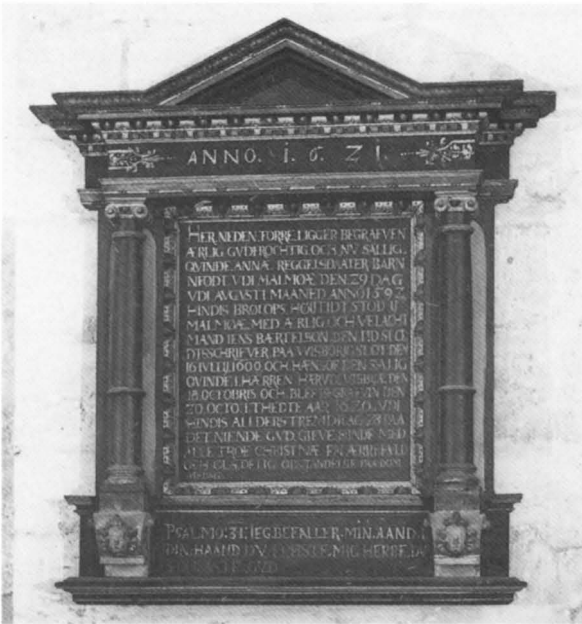 ANNO. 1. 6. 2 1.
HER NEDEN FORRE LIGGER BEGRAFVEN
ÆRLIG GVDFROCHTIG OCH NV SALLIG.
QVINDE ANNÆ REGGELSDAATER BARN
NFØDT VDI MALMOÆ DEN 29 DAG
VDI AVGVSTI MAANED ANNO 1592
HINDIS BROLOPS HØITIDT STOD II
MALMOÆ MED ÆRLIG OCH VELACHT
MAND IENS BÆRTELSON DEN TID
PAA VVISBORIG SLOT DEN
16 IVLLII 1600 OCH HÆNSOF DEN SALIG
QVINDE I HÆRREN VISBUE DEN
18 OCTOBRIS OCH BLEF BEGRAFVIN DEN
20 OCTO. I THEDTE AAR 1620 VDI
HINDIS ALLDERS 28 PAA
DET NIENDE GVD GIEVE HINDE MED
ALLE TROE CHRISTNÆ EN ÆRREFVLD
OCH GLÆDELIG OPSTANDELSE
PSALMO: 31: IEG BEFALLER MIN AAND I
DIN HAAND DV MIG HERRE
GVD